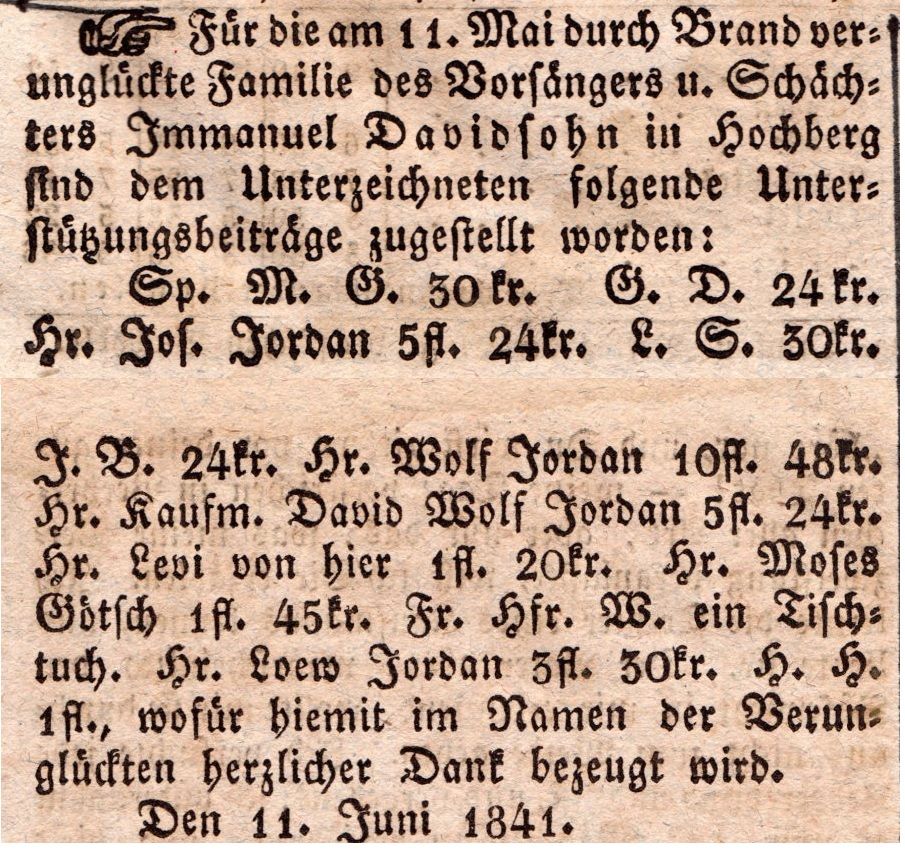 ☞ Für die am 11. Mai durch Brand ver-
unglückte Familie des Vorsängers u. Schäch-
ters Immanuel Davidsohn in Hochberg
sind dem Unterzeichneten folgende Unter-
stützungsbeiträge zugestellt worden:
Sp. M. G. 30kr. G. D. 24kr.
Hr. Jos. Jordan 5fl. 24kr. L. S. 30kr.
J. B. 24kr. Hr. Wolf Jordan 10fl. 48kr.
Hr. Kaufm. David Wolf Jordan 5fl. 24kr.
Hr. Levi von hier 1fl. 20kr. Hr. Moses
Götsch 1fl. 45kr. Fr. Hfr. W. ein Tisch-
tuch. Hr. Loew Jordan 3fl. 30kr. H. H.
1fl., wofür hiemit im Namen der Verun-
glückten herzlicher Dank bezeugt wird.
Den 11. Juni 1841.